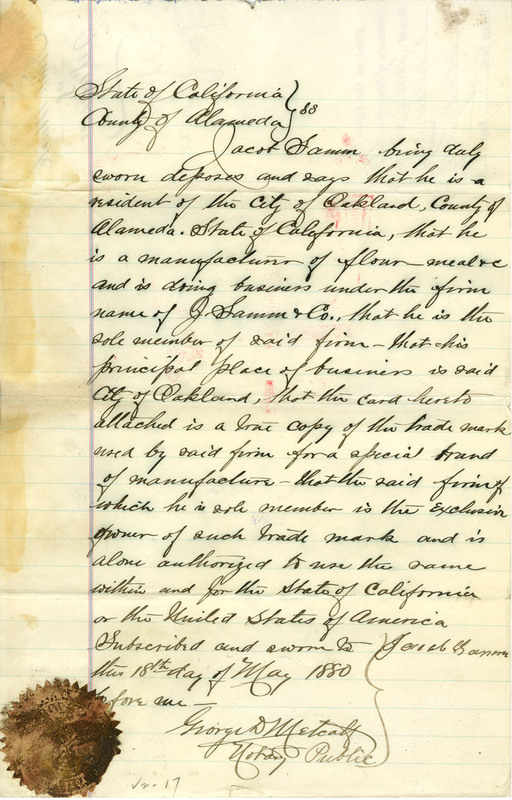 State of California } SS
County of Alameda
Jacob Samm being duly
sworn deposes and says that he is a
resident of the City of Oakland, County of
Alameda. State of California, that he
is a manufacturer of flour meal &c
and is doing business under the firm
name of J. Samm & Co., that he is the
sole member of said firm - that his
principal place of business is said
City of Oakland, that the card hereto
attached is a true copy of the trade mark
used by said firm for a special brand
of manufacture - that the said firm of
which he is sole member is the exclusive
owner of such trade mark and is
alone authorized to use the same
within and for the State of California
or the United States of America
Subscribed and sworn to } Jacob Samm
this 18th day of May 1880
before me
George D Metcalf
Notary Public
No. 17